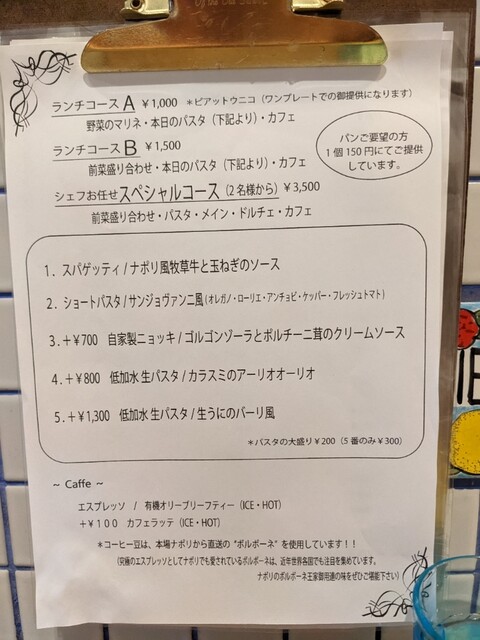 ランチコース A ¥1,000 *ピアットウニコ(ワンプレートでの御提供になります)
野菜のマリネ・本日のパスタ(下記より)・カフェ
ランチコース B ¥1,500
前菜盛り合わせ・本日のパスタ(下記より)・カフェ
パンご要望の方
1個150円にてご提供
しています。
シェフお任せスペシャルコース(2名様から)¥3,500
前菜盛り合わせ・パスタ・メイン・ドルチェ・カフェ
1. スパゲッティ/ナポリ風牧草牛と玉ねぎのソース
2. ショートパスタ/サンジョヴァンニ風(オレガノ・ローリエ・アンチョビ・ケッパー・フレッシュトマト)
3.+¥700 自家製ニョッキ/ゴルゴンゾーラとポルチーニ茸のクリームソース
4.+¥800 低加水生パスタ/カラスミのアーリオオーリオ
5.+¥1,300 低加水生パスタ/生うにのバーリ風
*パスタの大盛り¥200(5番のみ¥300)
~ Caffe ~
エスプレッソ / 有機オリーブリーフティー(ICE・HOT)
+¥100 カフェラッテ(ICE・HOT)
*コーヒー豆は、本場ナポリから直送の"ボルボーネ"を使用しています!!
(究極のエスプレッソとしてナポリでも愛されているボルボーネは、近年世界各国でも注目を集めています。
ナポリのボルボーネ王家御用達の味をぜひご堪能下さい)